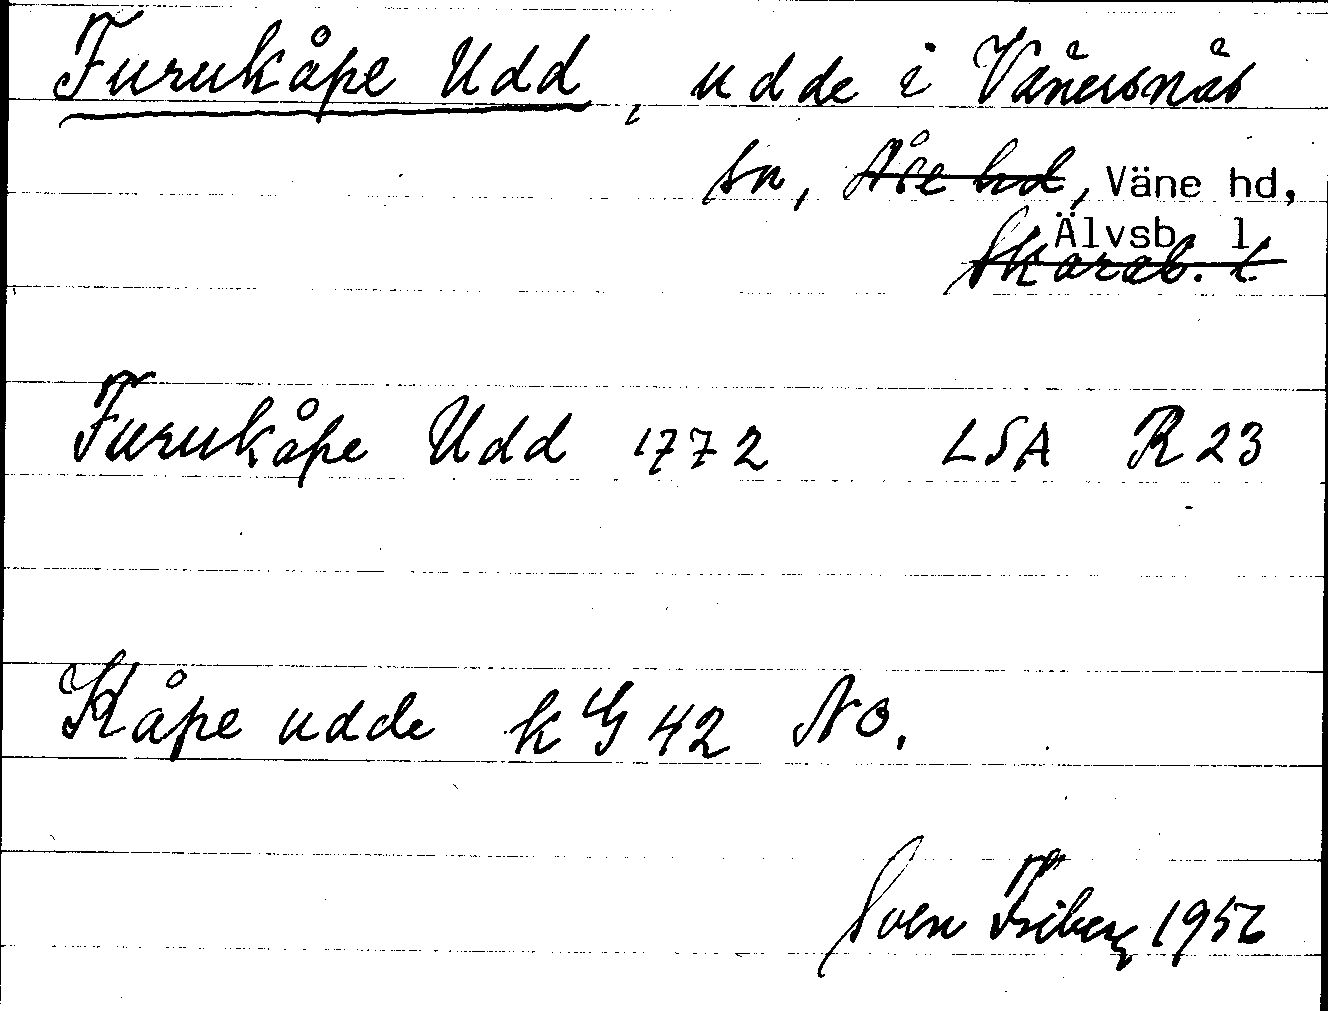 Furukåpe Udd, udde i Vänersnäs
sn, Åse hd, Väne hd,
Älvsb. l
Skarab. l
Furukåpe Udd 1772 LSA R 23
Kåpe udde kG 42 NO.
Sven Friberg 1956